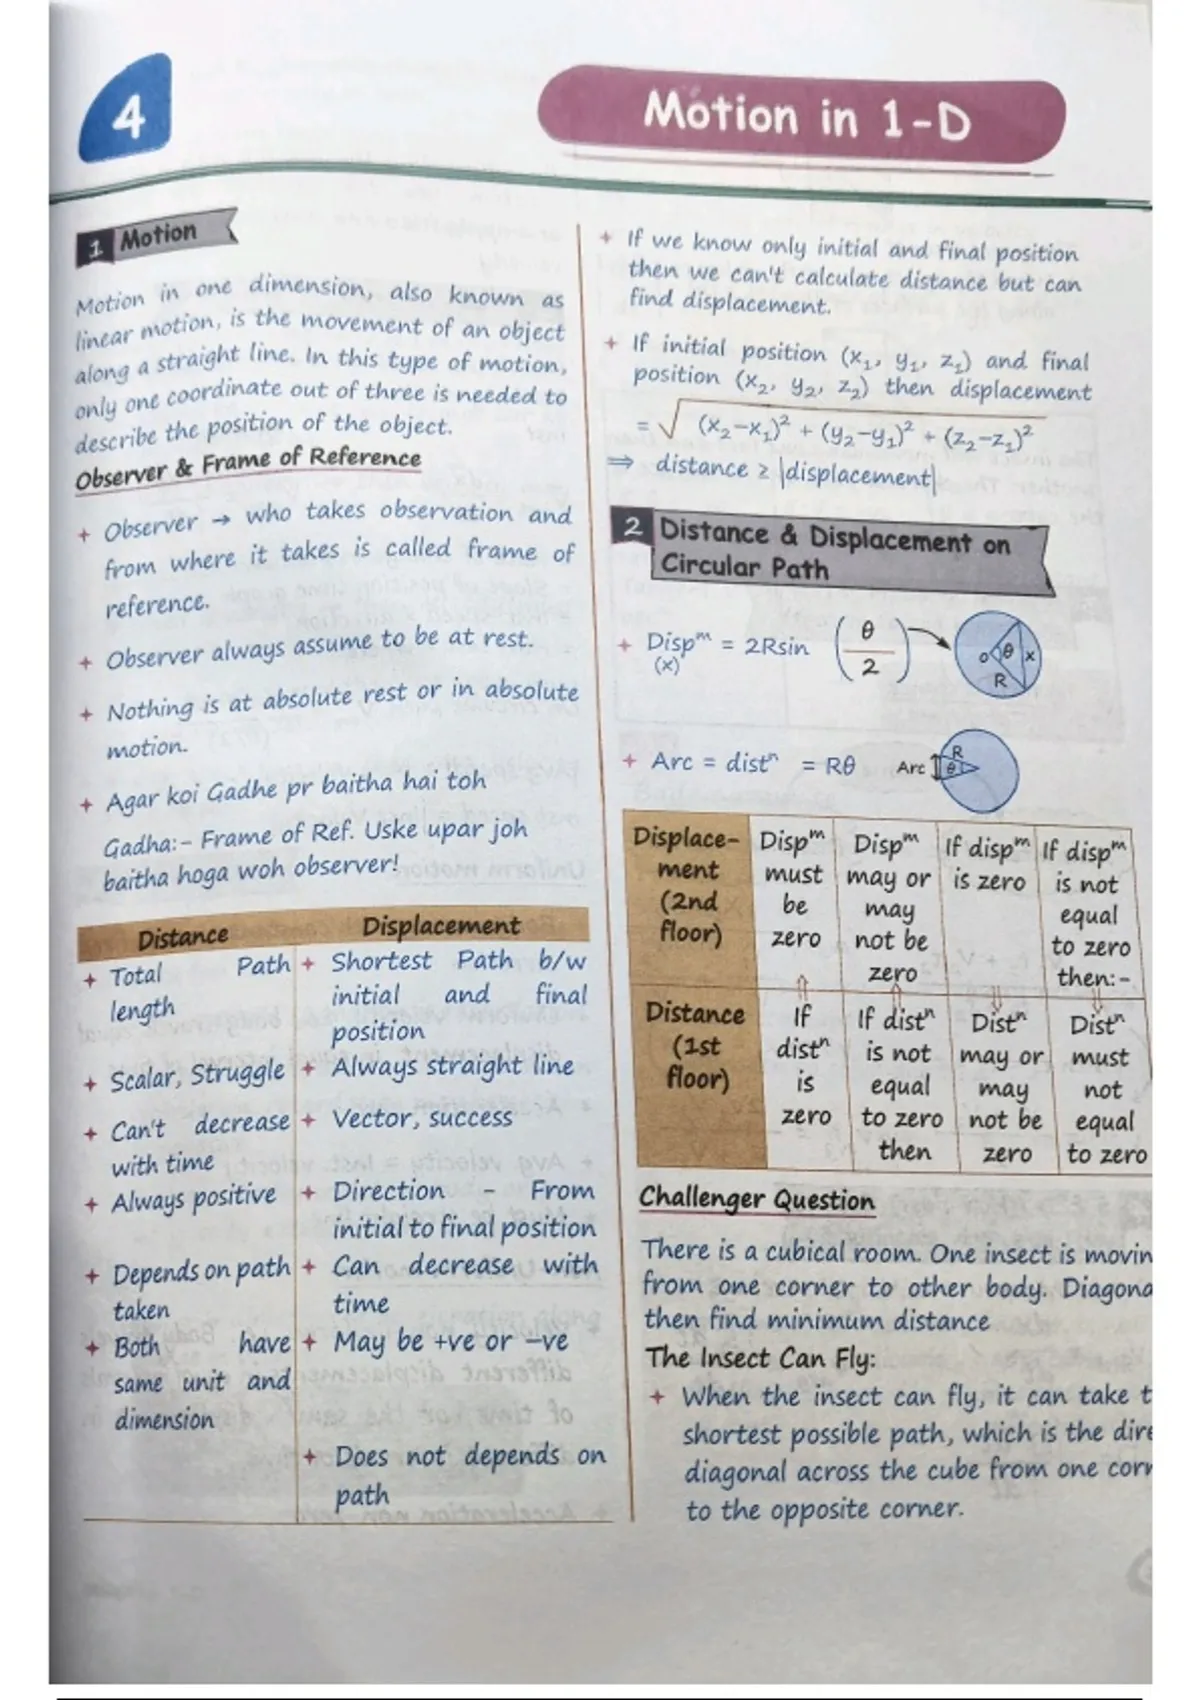 4
Motion in 1-D
1 Motion
Motion in one dimension, also known as
linear motion, is the movement of an object
along a straight line. In this type of motion,
only one coordinate out of three is needed to
describe the position of the object.
Observer & Frame of Reference
+ Observer → who takes observation and
from where it takes is called frame of
reference.
+ Observer always assume to be at rest.
+ Nothing is at absolute rest or in absolute
motion.
+ Agar koi Gadhe pr baitha hai toh
Gadha:- Frame of Ref. Uske upar joh
baitha hoga woh observer!
Distance Displacement
+ Total Path + Shortest Path b/w
length initial and final
position
+ Scalar, Struggle + Always straight line
+ Can't decrease + Vector, success
with time
+ Always positive + Direction - From
initial to final position
+ Depends on path + Can decrease with
taken time
+ Both have + May be +ve or –ve
same unit and
dimension
+ Does not depends on
path
+ If we know only initial and final position
then we can't calculate distance but can
find displacement.
+ If initial position (x₁, y₁, z₁) and final
position (x₂, y₂, z₂) then displacement
= √(x₂–x₁)² + (y₂–y₁)² + (z₂–z₁)²
⇒ distance ≥ |displacement|
2 Distance & Displacement on
Circular Path
+ Dispᵐ = 2Rsin (θ/2)
(x)
O θ x
R
+ Arc = distⁿ = Rθ
Arc R θ
Displace- Dispᵐ Dispᵐ If dispᵐ If dispᵐ
ment must may or is zero is not
(2nd be may equal
floor) zero not be to zero
zero then:-
Distance If If distⁿ Distⁿ Distⁿ
(1st distⁿ is not may or must
floor) is equal may not
zero to zero not be equal
then zero to zero
Challenger Question
There is a cubical room. One insect is movin
from one corner to other body. Diagona
then find minimum distance
The Insect Can Fly:
+ When the insect can fly, it can take t
shortest possible path, which is the dire
diagonal across the cube from one corn
to the opposite corner.